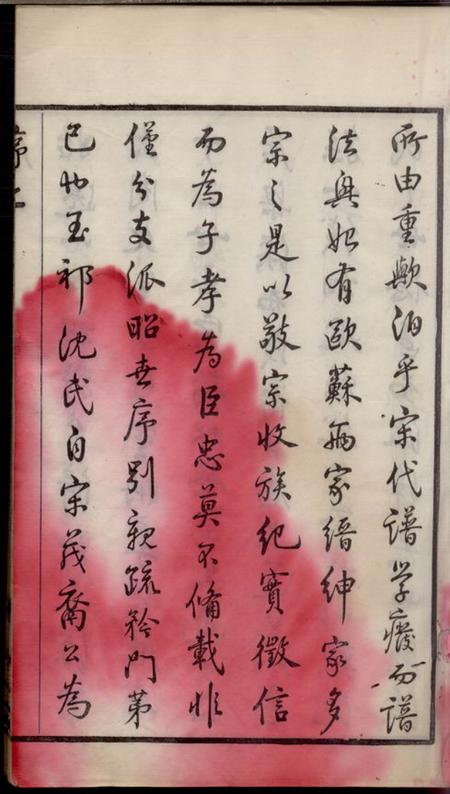 所由重歟洎乎宋代譜学癈而譜
法興始有歐蘇兩家縉紳家多
宗之是以敬宗收族紀實徵信
而為子孝為臣忠莫不備載非
僅分支派昭世序别親疏矜門第
已也玉祁沈氏自宋茂裔公為
序二